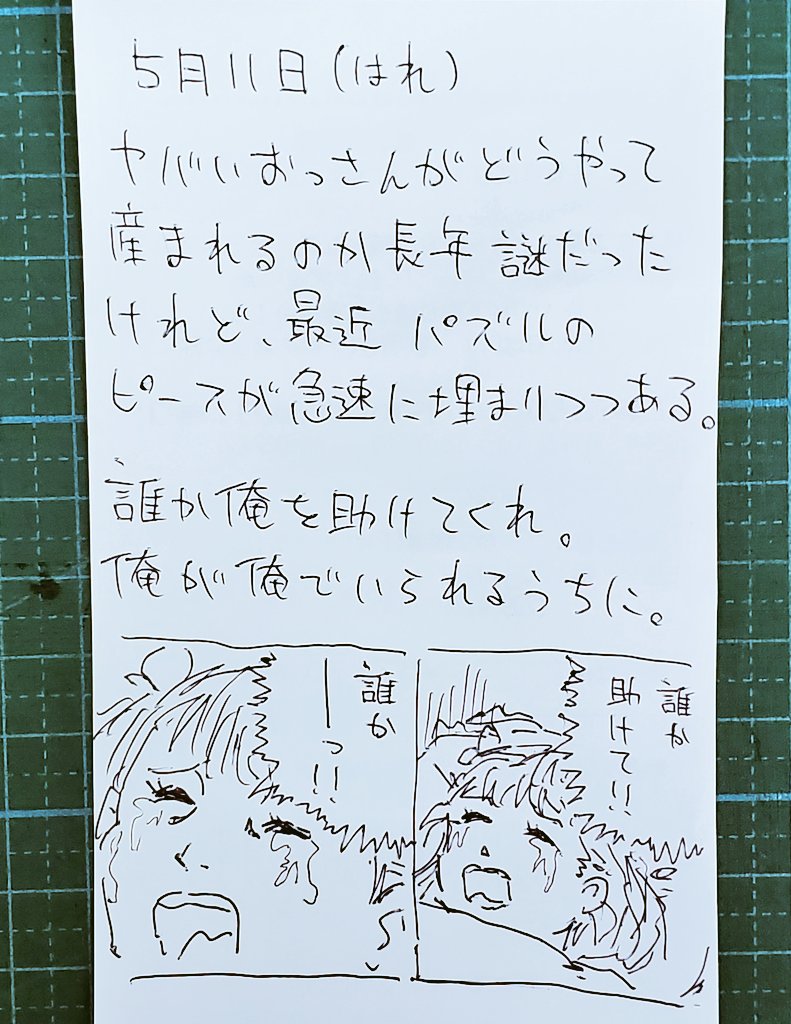 5月11日(はれ)
ヤバいおっさんがどうやって
産まれるのか長年謎だった
けれど、最近パズルの
ピースが急速に埋まりつつある。
誰か俺を助けてくれ。
俺が俺でいられるうちに。
誰か
助けて!!
誰か
ーっ!!